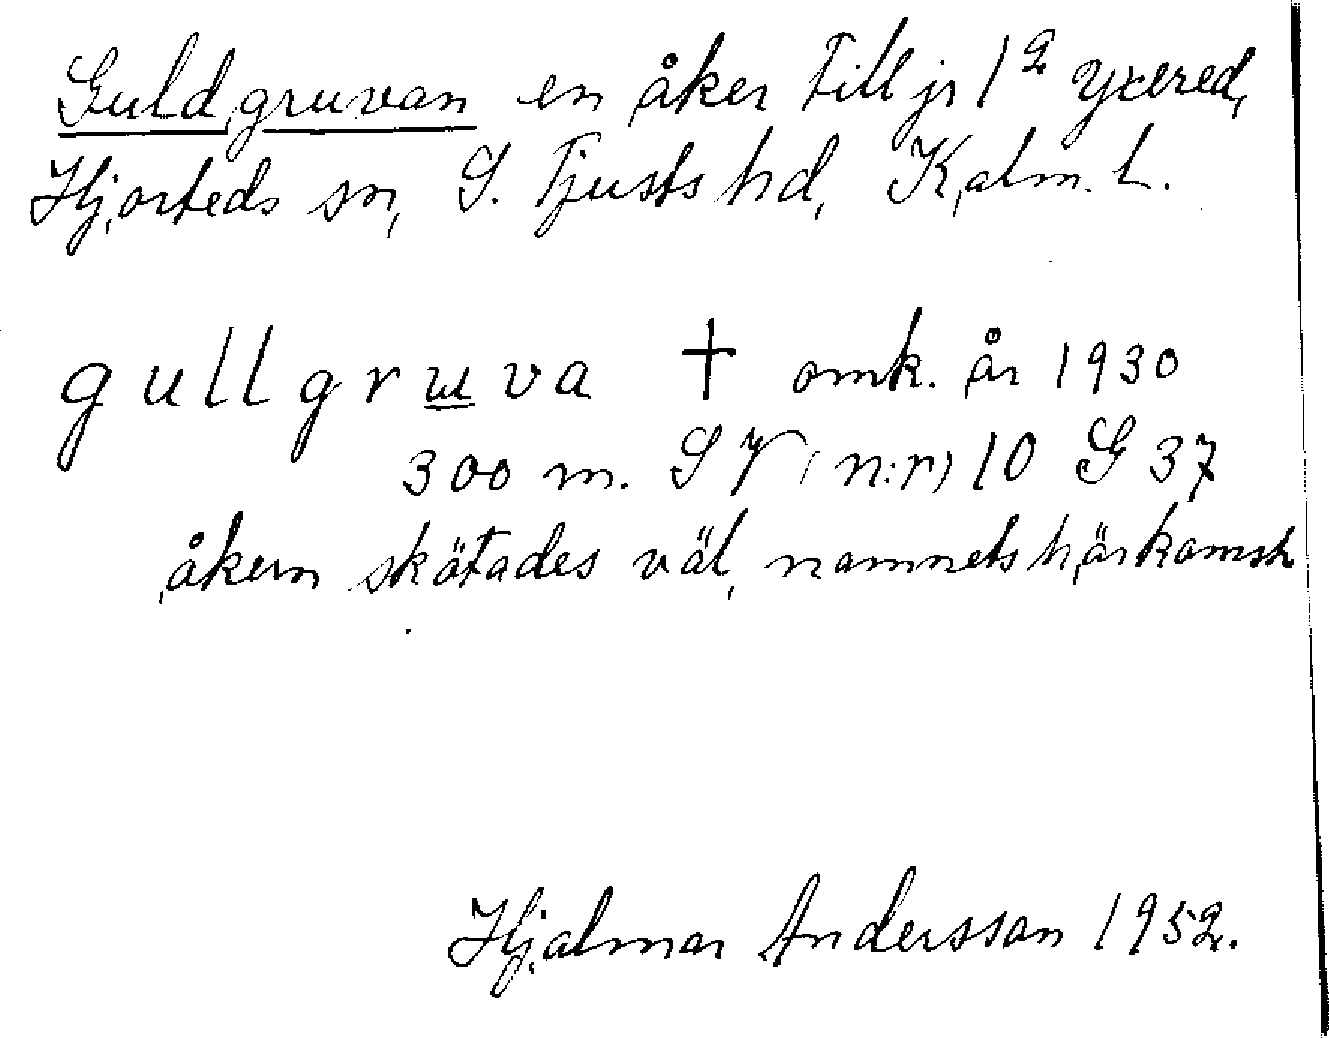 Guldgruvan en åker till jr 1² Yxered,
Hjorteds sn, S. Tjusts hd, Kalm. l.
gullgruva † omk. år 1930
300 m. SV (n:r) 10 G 37
åkern skötades väl, namnets härkomst
Hjalmar Andersson 1952.